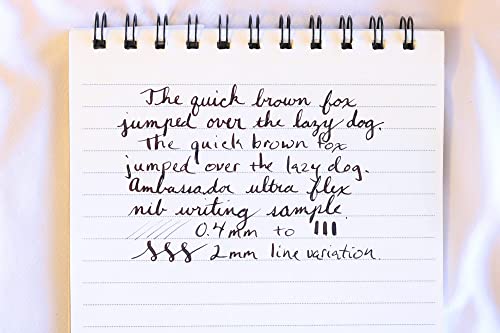 The quick brown fox
jumped over the lazy dog.
The quick brown fox
jumped over the lazy dog.
Ambassador ultra flex
nib writing sample.
0.4mm to
2mm line variation.